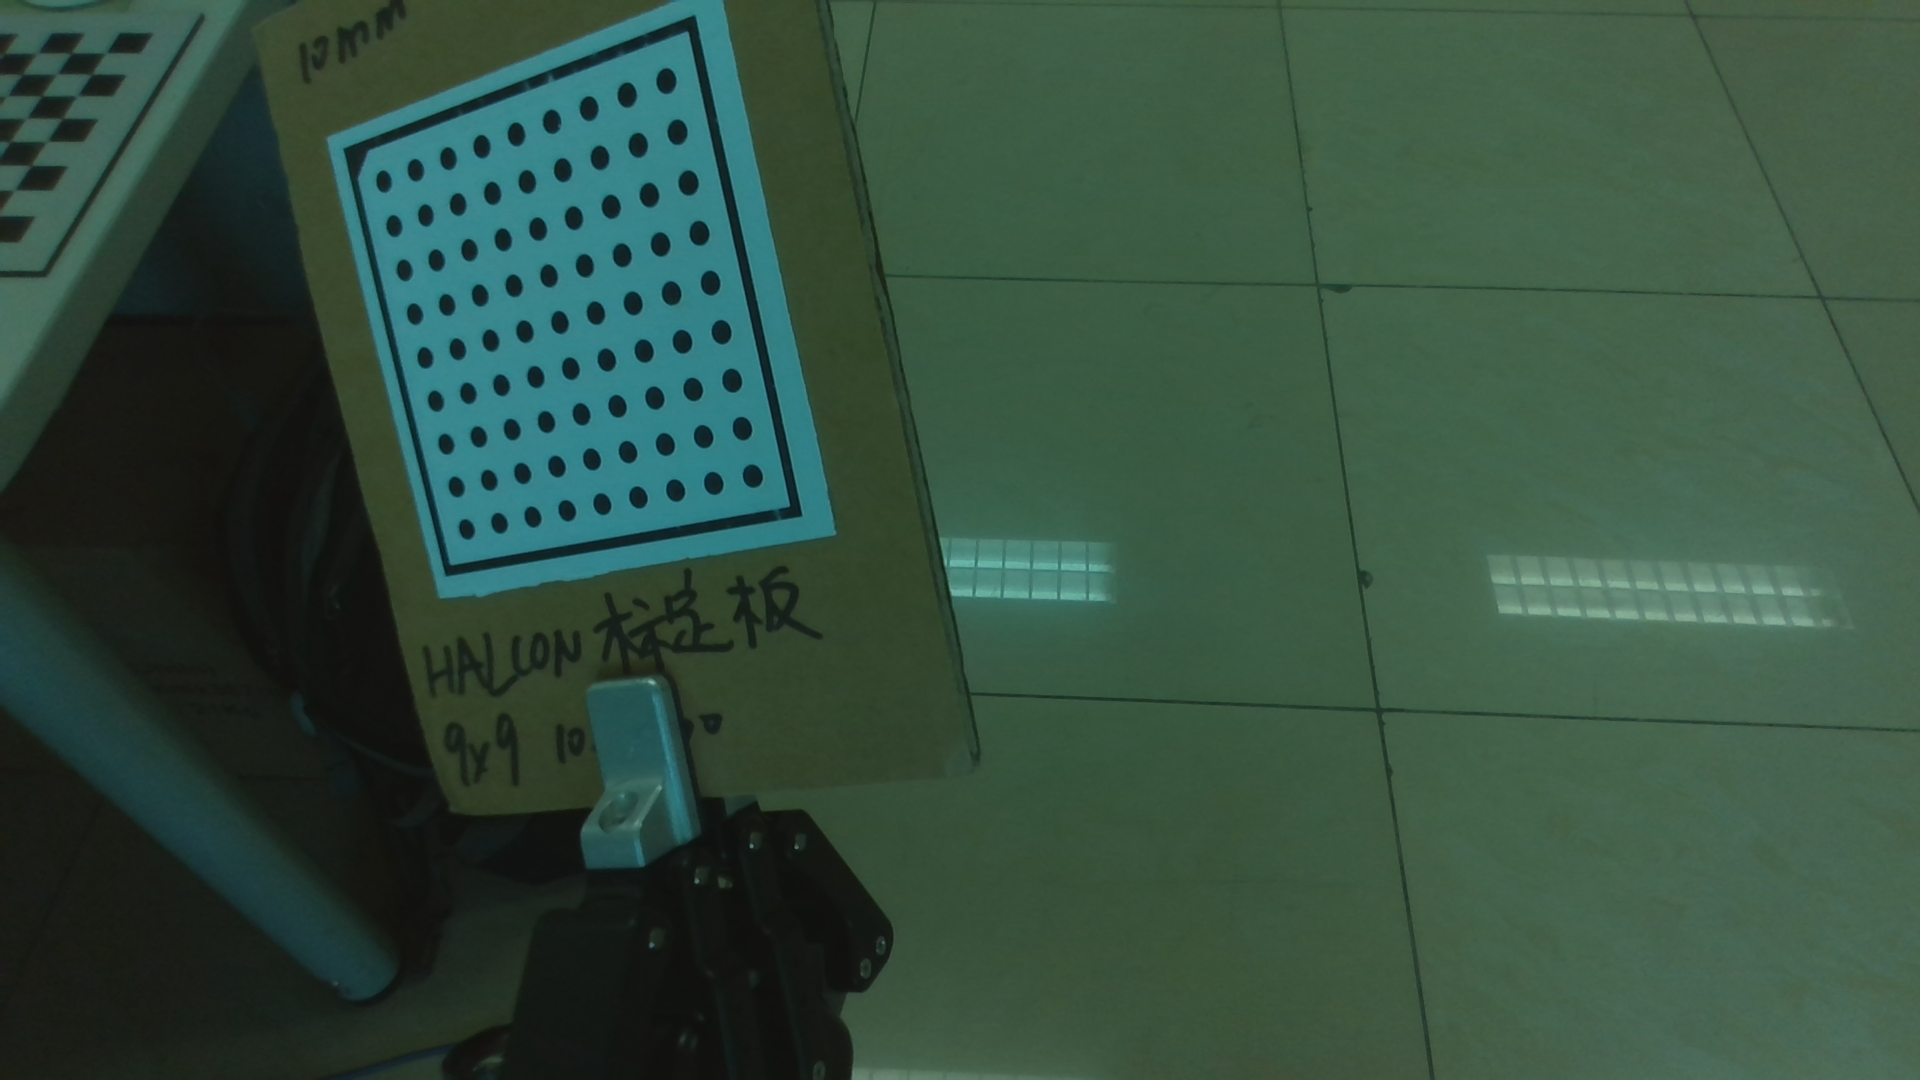 10mm
HALCON 标定板
9x9 10